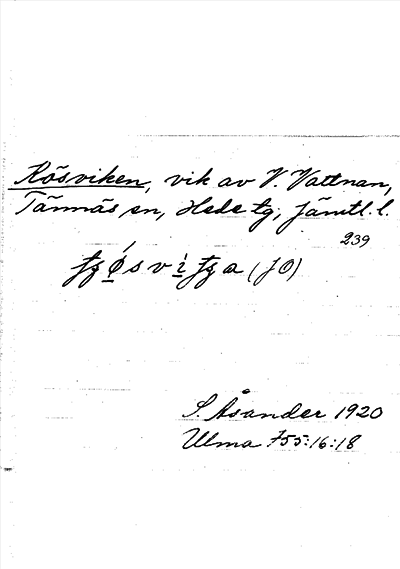 Rösviken, vik av V. Vattnan,
Tännäs sn, Hede tg, Jämtl. l.
239
S. Åsander 1920
Ulma 755:16:18